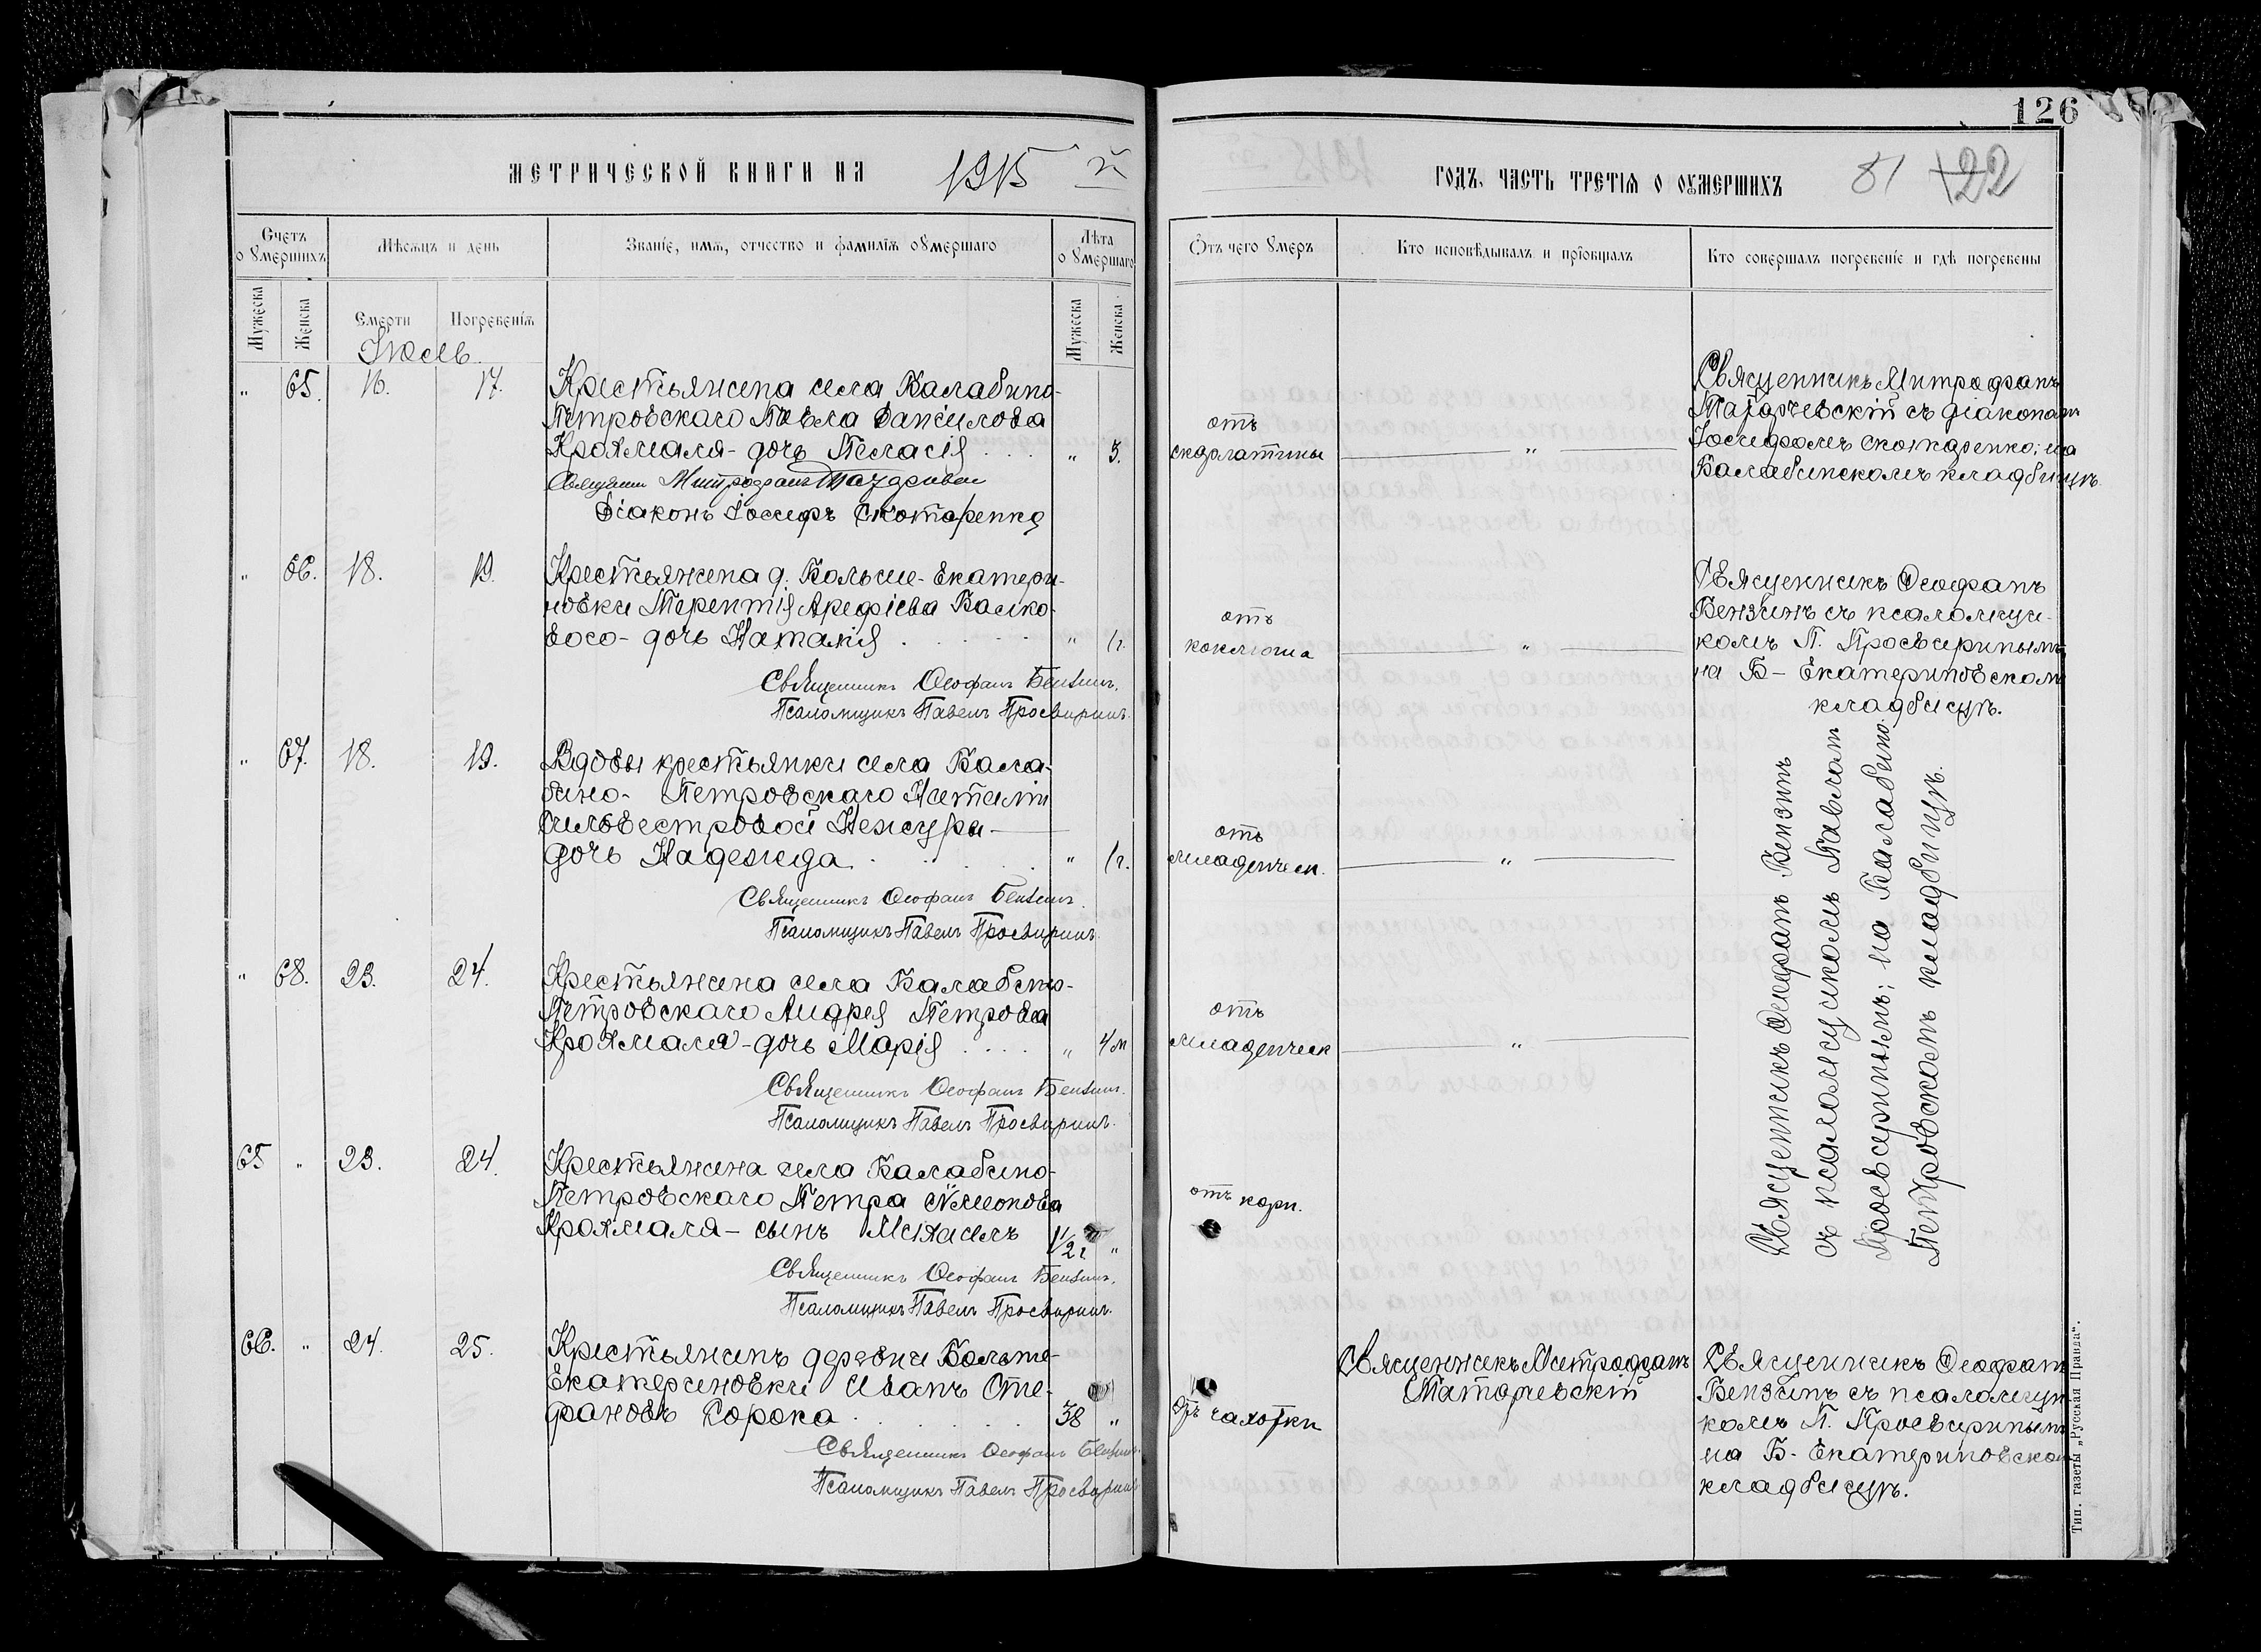 126
МЕТРИЧЕСКОЙ КНИГИ НА 1915 й
ГОДЪ, ЧАСТЬ ТРЕТІЯ О ОУМЕРШИХЪ 81 122
Счетъ оумершихъ
Мѣсяцъ и день
Званіе, имя, отчество и фамилія оумершаго
Лѣта оумершаго
Отъ чего умеръ
Кто исповѣдывалъ и пріобщалъ
Кто совершалъ погребеніе и гдѣ погребены
Мужеска
Женска
Смерти
Погребенія
Мужеска
Женска
Іюль
„ 65. 16. 17. Крестьянина села Балабино-
Петровскаго Павла Данилова
Крохмаля - дочь Пелагія „ 3.
Священн Митрофанъ
Діаконъ Іосифъ Скотаренко
отъ
скарлатины
„
Священникъ Митрофанъ
съ діакономъ
Іосифомъ Скотаренко; на
Балабинскомъ кладбищѣ.
„ 66. 18. 19. Крестьянина д. Больше-Екатери-
новки Терентія Арефіева Валко-
вого - дочь Наталія „ 1г.
Священникъ Ѳеофанъ Бензинъ.
Псаломщикъ Павелъ Просвиринъ.
отъ
коклюша
„
Священникъ Ѳеофанъ
Бензинъ съ псаломщи-
комъ П. Просвиринымъ,
на Б-Екатериновскомъ
кладбищѣ.
„ 67. 18. 19. Вдовы крестьянки села Бала-
бино- Петровскаго Наталіи
Сильвестровой Ненжуры -
дочь Надежда „ 1г.
Священникъ Ѳеофанъ Бензинъ.
Псаломщикъ Павелъ Просвиринъ.
отъ
младенческ.
„
Священникъ Ѳеофанъ Бензинъ
съ псаломщикомъ Павломъ
Просвиринымъ; на Балабино-
Петровскомъ кладбищѣ.
„ 68. 23. 24. Крестьянина села Балабино-
Петровскаго Андрея Петрова
Крохмаля - дочь Марія „ 4м
Священникъ Ѳеофанъ Бензинъ.
Псаломщикъ Павелъ Просвиринъ.
отъ
младенческ
„
65 „ 23. 24. Крестьянина села Балабино-
Петровскаго Петра Симонова
Крохмаля - сынъ Михаилъ 1 1/2 г „
Священникъ Ѳеофанъ Бензинъ.
Псаломщикъ Павелъ Просвиринъ.
отъ кори.
66. „ 24. 25. Крестьянинъ деревни Больше-
Екатериновки Иванъ Сте-
фановъ Сорока 38 „
Священникъ Ѳеофанъ Бензинъ.
Псаломщикъ Павелъ Просвиринъ
отъ чахотки
Священникъ Митрофанъ
Священникъ Ѳеофанъ
Бензинъ съ псаломщи-
комъ П. Просвиринымъ
на Б-Екатериновском
кладбищѣ.
Тип. газеты „Русская Правда“.